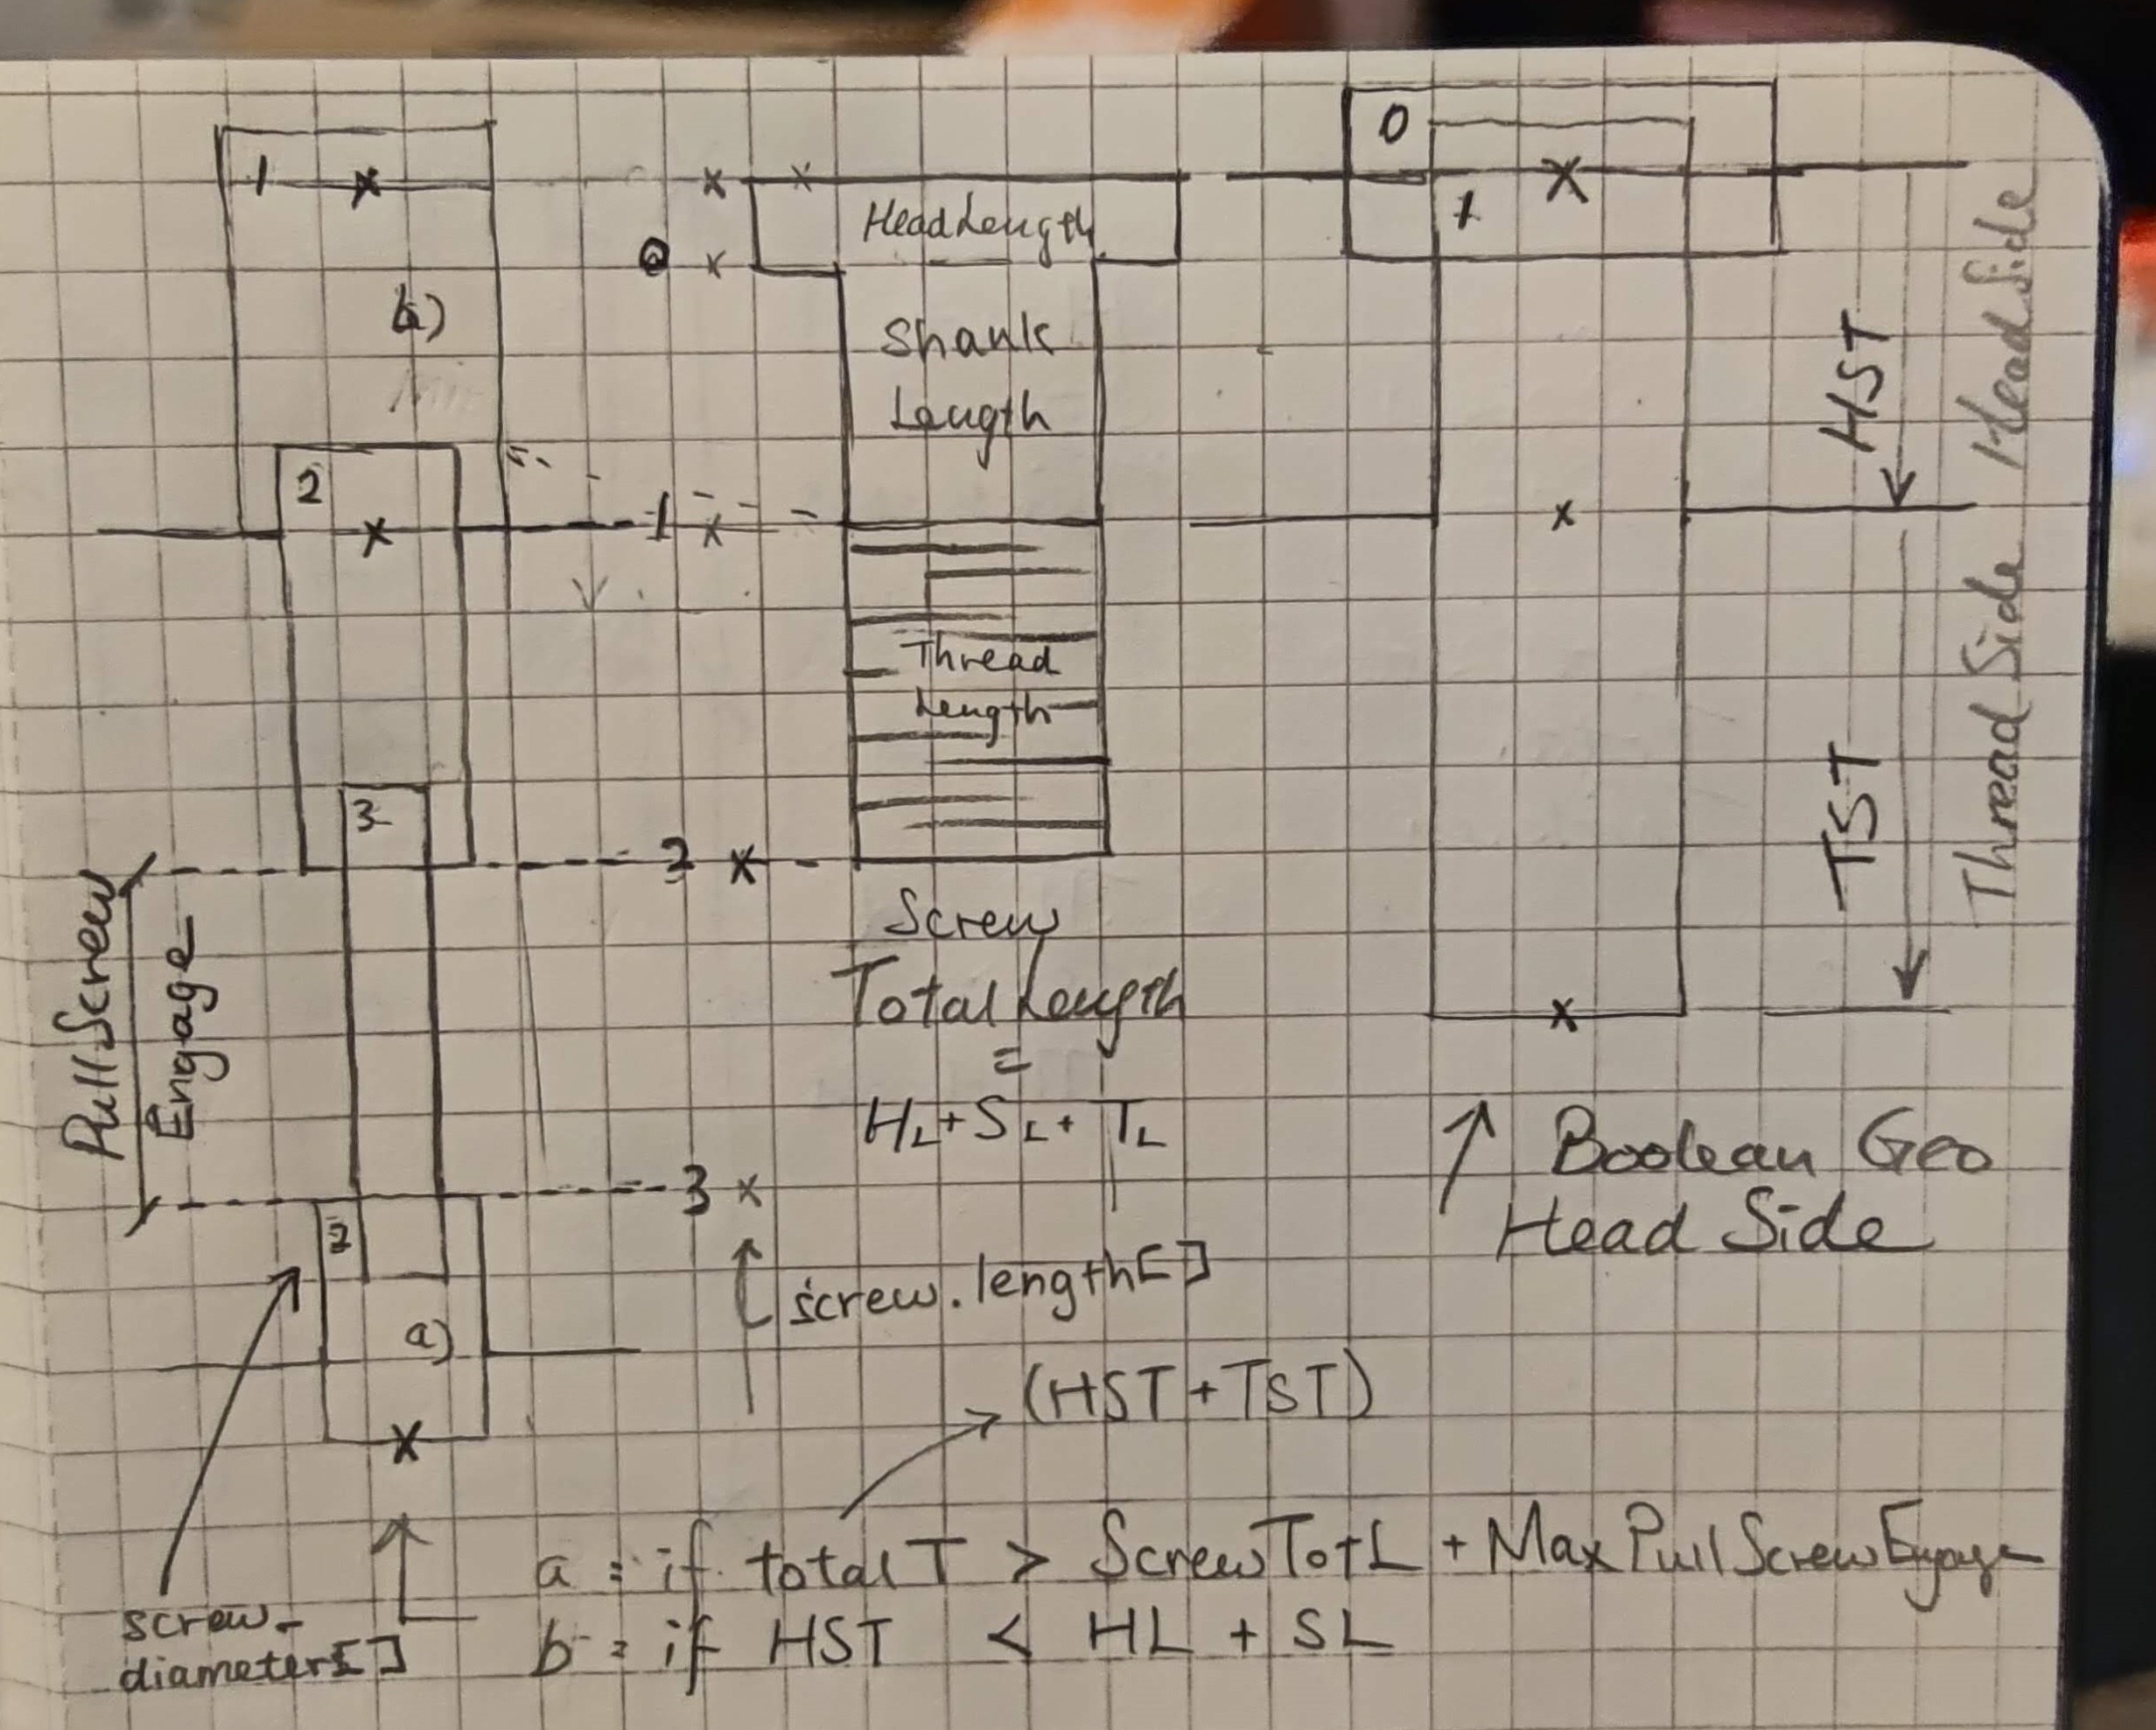 1
b)
2
3
PullScrew
Engage
2
a)
screw-
diameter[]
0
1
2
3
HeadLength
Shank
Length
Thread
Length
Screw
Total Length
=
HL + SL + TL
screw.length[]
0
1
HST
Head Side
TST
Thread Side
Boolean Geo
Head Side
(HST + TST)
a : if total T > ScrewTotL + MaxPullScrewEngage
b : if HST < HL + SL